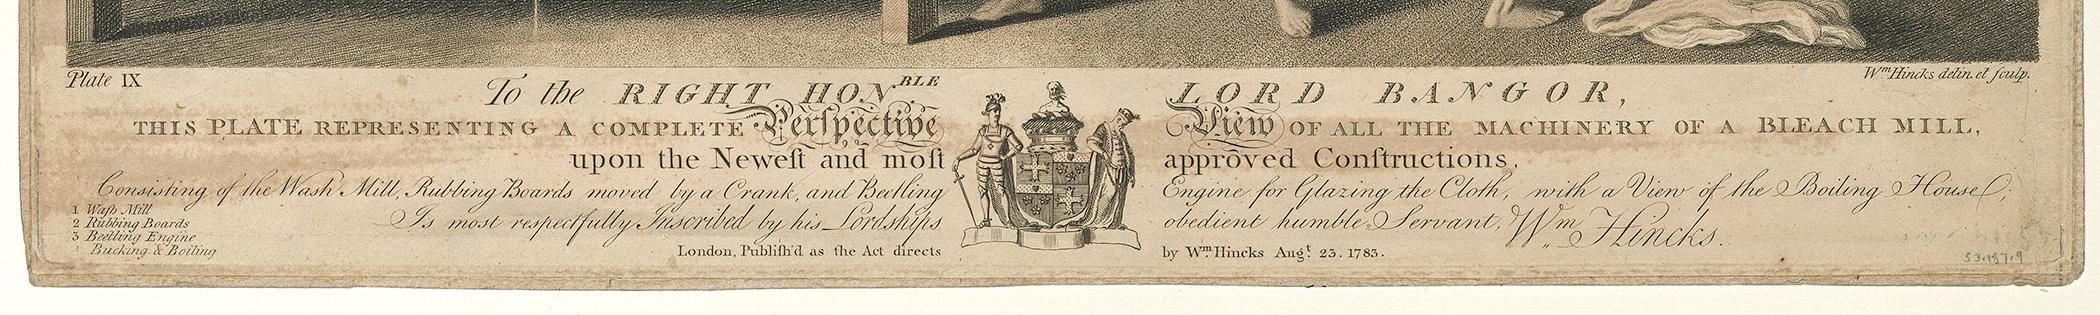 Plate IX
Wm. Hincks delin. et sculp.
To the RIGHT HONBLE LORD BANGOR,
THIS PLATE REPRESENTING A COMPLETE Perſpective View OF ALL THE MACHINERY OF A BLEACH MILL,
upon the Neweſt and moſt approved Conſtructions,
Consisting of the Wash Mill, Rubbing Boards moved by a Crank, and Beetling Engine for Glazing the Cloth, with a View of the Boiling House;
Is most respectfully Inscribed by his Lordships obedient humble Servant, Wm. Hincks.
1 Waſh Mill
2 Rubbing Boards
3 Beetling Engine
4 Bucking & Boiling
London, Publiſh'd as the Act directs by Wm. Hincks Augt. 23. 1783.